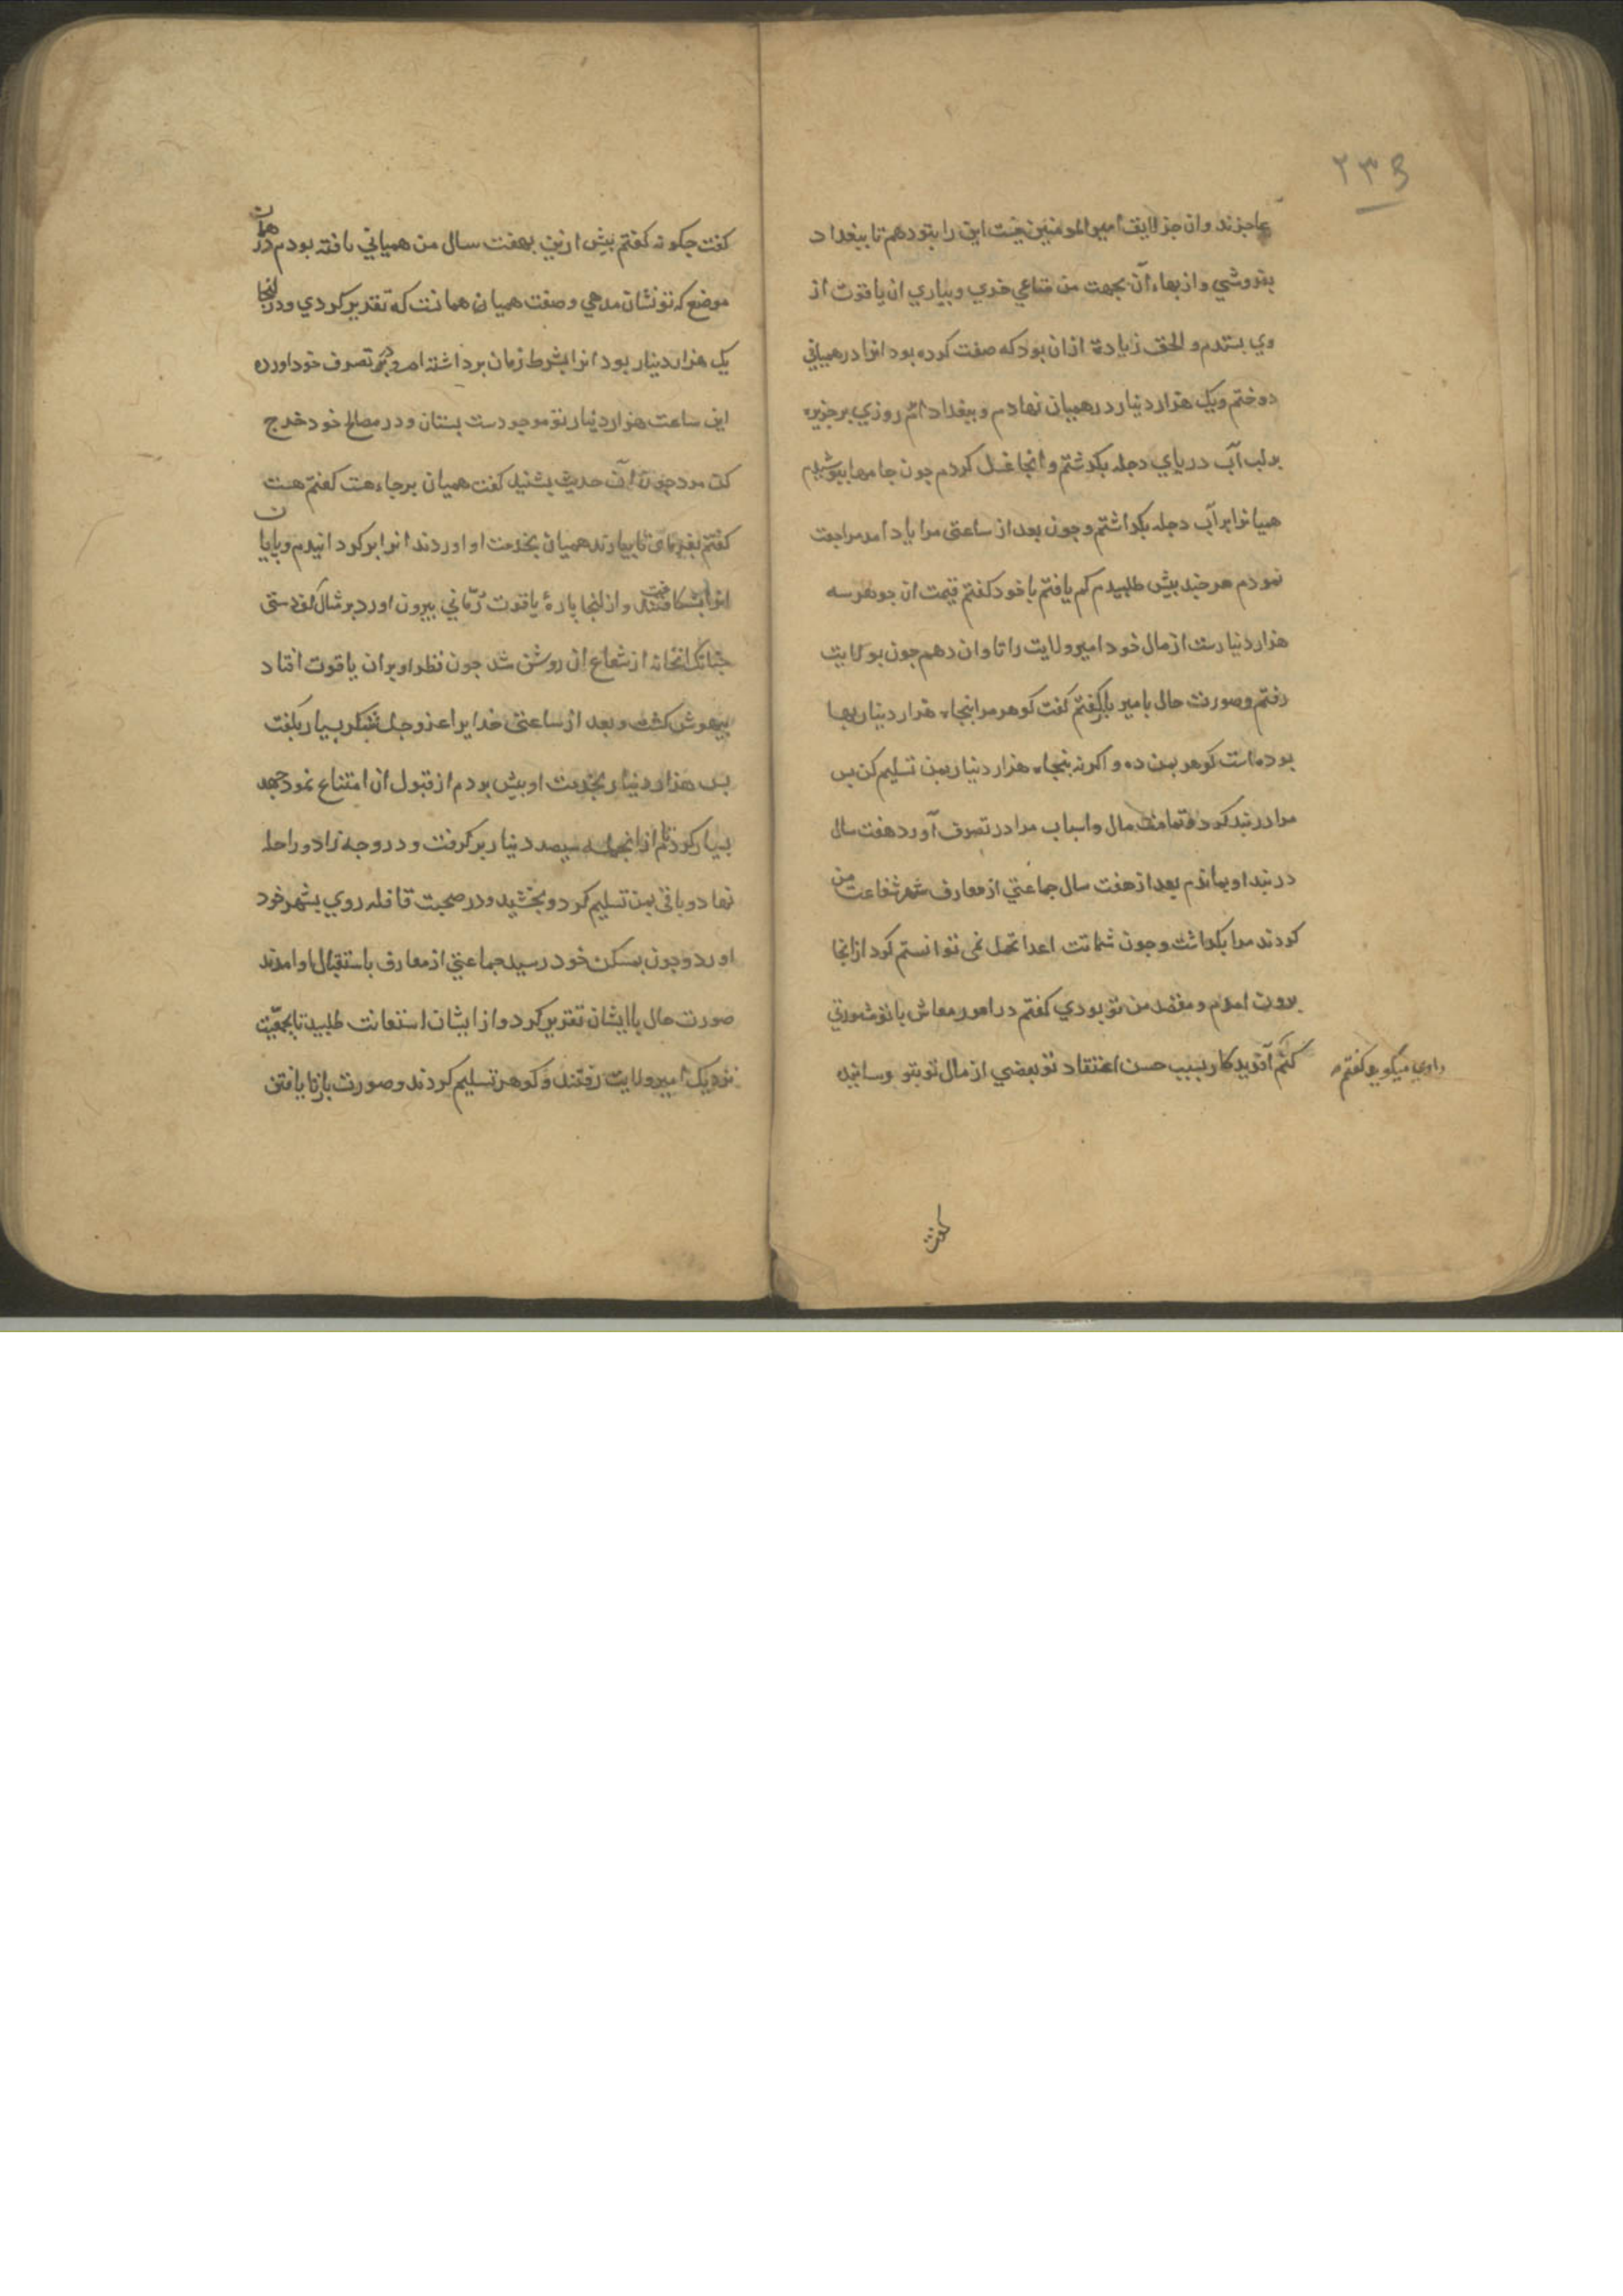 ۲۳۵
عاجزند وان جز لایق امیرالمومنین نیست این را بتو دهم تا ببغداد
بفروشی و از بهاء آن بجهت من متاعی خری و بیاری ان یاقوت از
وی بستدم و الحق زیادة ازان بود که صفت کرده بود انرا در همیانی
دوختم و یک هزار دینار در همیان نهادم و ببغداد امدم روزی بر جزیره
بر لب آب دریای دجله بکذشتم و انجا غسل کردم چون جامها بپوشیدم
همیانرا بر آب دجله بکذاشتم و چون بعد از ساعتی مرا یاد امد مراجعت
نمودم هر چند بیش طلبیدم کم یافتم با خود کفتم قیمت ان جوهر سه
هزار دینارست از مال خود امیر ولایت را تاوان دهم چون بولایت
رفتم و صورت حال با امیر کفتم کفت کوهر مرا پنجاه هزار دینار بها
بوده است کوهر بمن ده و اکرنه پنجاه هزار دینار بمن تسلیم کن پس
مرا در بند کرد و تمامت مال و اسباب مرا در تصرف آورد هفت سال
در بند او بماندم بعد از هفت سال جماعتی از معارف شهر شفاعت من
کردند مرا بکذاشت و چون شماتت اعدا تحمل نمی توانستم کرد ازانجا
برون امدم و مقصد من تو بودی کفتم در امور معاش با تو مشورتی
کنم آفریدکار بسبب حسن اعتقاد تو بعضی از مال تو بتو رسانید
راوی میکوید کفتم
کفت
کفت چکونه کفتم پیش ازین بهفت سال من همیانی یافته بودم در همان
موضع که تو نشان مدهی و صفت همیان همانست که تقریر کردی و در انجا
یک هزار دینار بود انرا بشرط زمان برداشته ام و در تصرف خود اورده
این ساعت هزار دینار تو موجودست بستان و در مصالح خود خرج
کن مرد چون آن حدیث بشنید کفت همیان برجاء هست کفتم هست
کفتم بفرمای تا بیارند همیان بخدمت او اوردند انرا بر کردانیدم و بابان
انرا بشکافت و از انجا پارۀ یاقوت رمّانی بیرون اورد بر مثال کف دستی
چنانک انخانه از شعاع ان روشن شد چون نظر او بران یاقوت افتاد
بیهوش کشت و بعد از ساعتی خدایرا عز و جل شکر بسیار بکفت
پس هزار دینار بخدمت او پیش بردم از قبول ان امتناع نمود جهد
بسیار کردم تا ازانجمله سیصد دینار برکرفت و در وجه زاد و راحله
نهاد و باقی بمن تسلیم کرد و بخشید و در صحبت قافله روی بشهر خود
اورد و چون بمسکن خود رسید جماعتی از معارف باستقبال او امدند
صورت حال با ایشان تقریر کرد و از ایشان استعانت طلبید تا بجمعیّت
نزدیک امیر ولایت رفتند و کوهر تسلیم کردند و صورت باز یافتن